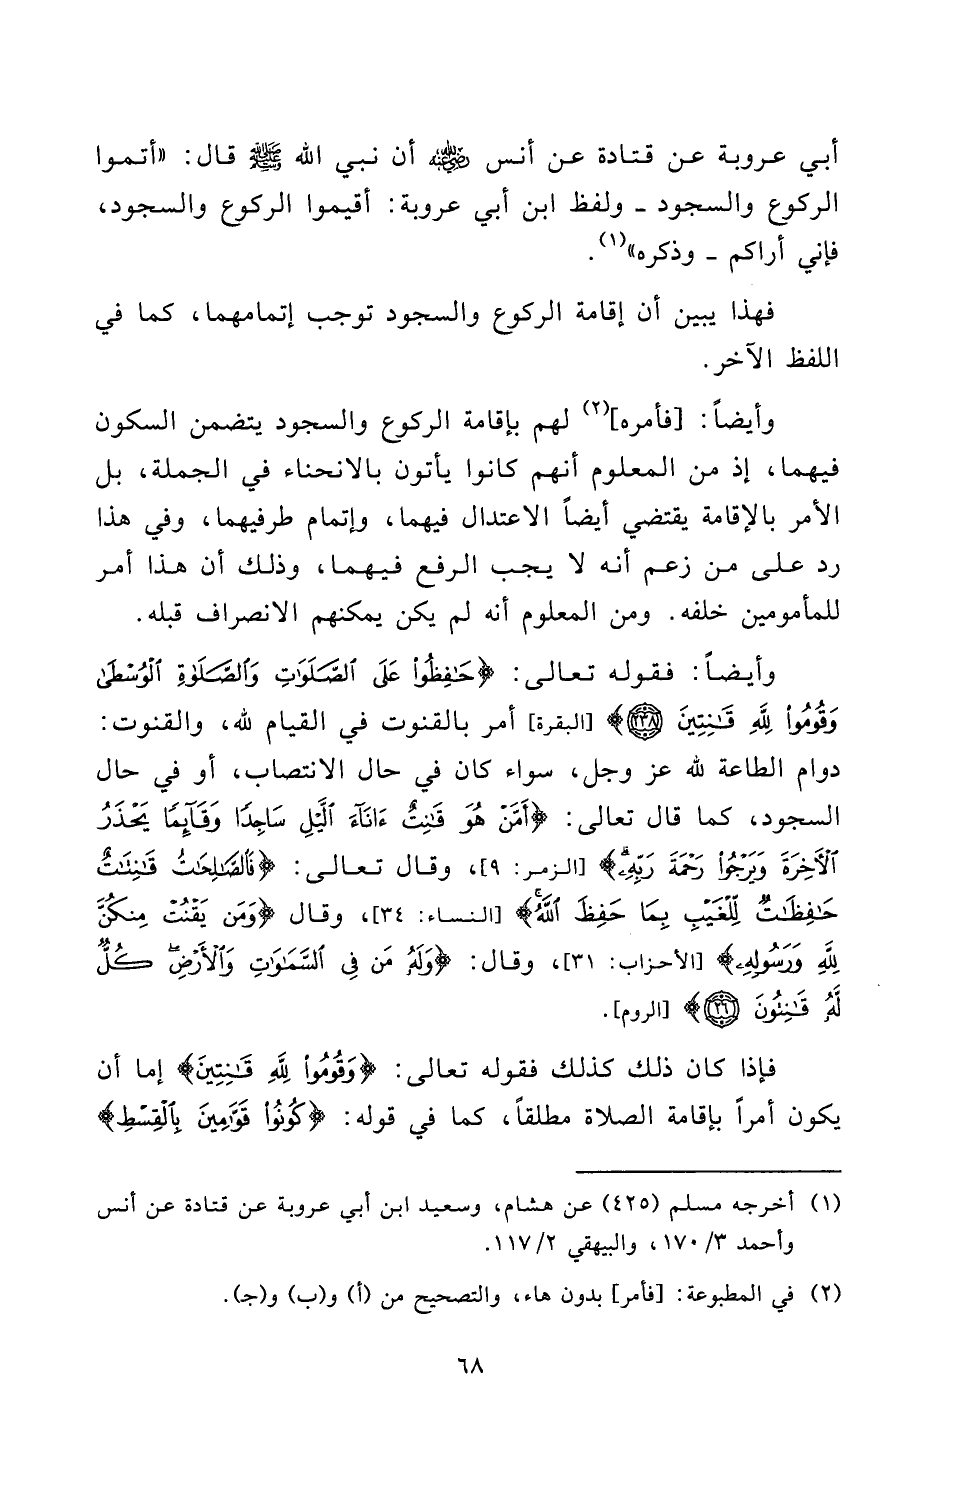 أبي عروبة عن قتادة عن أنس رضي الله عنه أن نبي الله ﷺ قال: «أتموا
الركوع والسجود ـ ولفظ ابن أبي عروبة: أقيموا الركوع والسجود،
فإني أراكم ـ وذكره»(١).
فهذا يبين أن إقامة الركوع والسجود توجب إتمامهما، كما في
اللفظ الآخر.
وأيضاً: [فأمره](٢) لهم بإقامة الركوع والسجود يتضمن السكون
فيهما، إذ من المعلوم أنهم كانوا يأتون بالانحناء في الجملة، بل
الأمر بالإقامة يقتضي أيضاً الاعتدال فيهما، وإتمام طرفيهما، وفي هذا
رد على من زعم أنه لا يجب الرفع فيهما، وذلك أن هذا أمر
للمأمومين خلفه. ومن المعلوم أنه لم يكن يمكنهم الانصراف قبله.
وأيضاً: فقوله تعالى: ﴿حَٰفِظُوا۟ عَلَى ٱلصَّلَوَٰتِ وَٱلصَّلَوٰةِ ٱلْوُسْطَىٰ
وَقُومُوا۟ لِلَّهِ قَٰنِتِينَ ٢٣٨﴾ [البقرة] أمر بالقنوت في القيام لله، والقنوت:
دوام الطاعة لله عز وجل، سواء كان في حال الانتصاب، أو في حال
السجود، كما قال تعالى: ﴿أَمَّنْ هُوَ قَٰنِتٌ ءَانَآءَ ٱلَّيْلِ سَاجِدًا وَقَآئِمًا يَحْذَرُ
ٱلْءَاخِرَةَ وَيَرْجُوا۟ رَحْمَةَ رَبِّهِۦ﴾ [الزمر: ٩]، وقال تعالى: ﴿فَٱلصَّٰلِحَٰتُ قَٰنِتَٰتٌ
حَٰفِظَٰتٌ لِّلْغَيْبِ بِمَا حَفِظَ ٱللَّهُ﴾ [النساء: ٣٤]، وقال ﴿وَمَن يَقْنُتْ مِنكُنَّ
لِلَّهِ وَرَسُولِهِۦ﴾ [الأحزاب: ٣١]، وقال: ﴿وَلَهُۥ مَن فِى ٱلسَّمَٰوَٰتِ وَٱلْأَرْضِ كُلٌّ
لَّهُۥ قَٰنِتُونَ ٢٦﴾ [الروم].
فإذا كان ذلك كذلك فقوله تعالى: ﴿وَقُومُوا۟ لِلَّهِ قَٰنِتِينَ﴾ إما أن
يكون أمراً بإقامة الصلاة مطلقاً، كما في قوله: ﴿كُونُوا۟ قَوَّٰمِينَ بِٱلْقِسْطِ﴾
(١) أخرجه مسلم (٤٢٥) عن هشام، وسعيد ابن أبي عروبة عن قتادة عن أنس
وأحمد ٣/ ١٧٠، والبيهقي ٢/ ١١٧.
(٢) في المطبوعة: [فأمر] بدون هاء، والتصحيح من (أ) و(ب) و(جـ).
٦٨